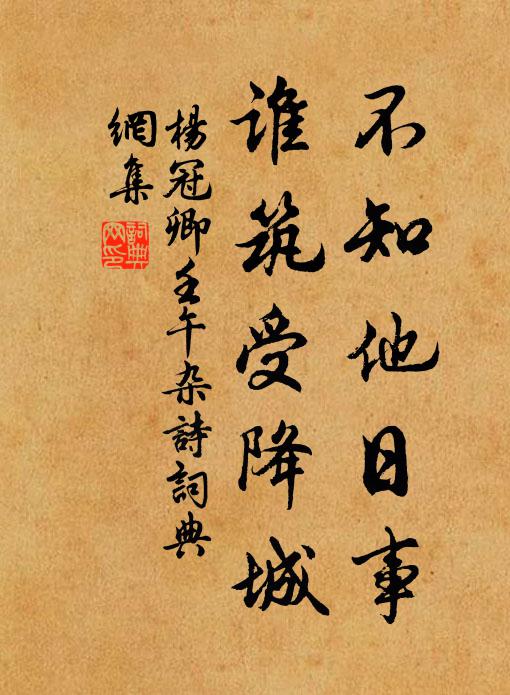 不知他日事
谁筑受降城
楊冠卿壬午杂詩詞典
網集
詞典
网印